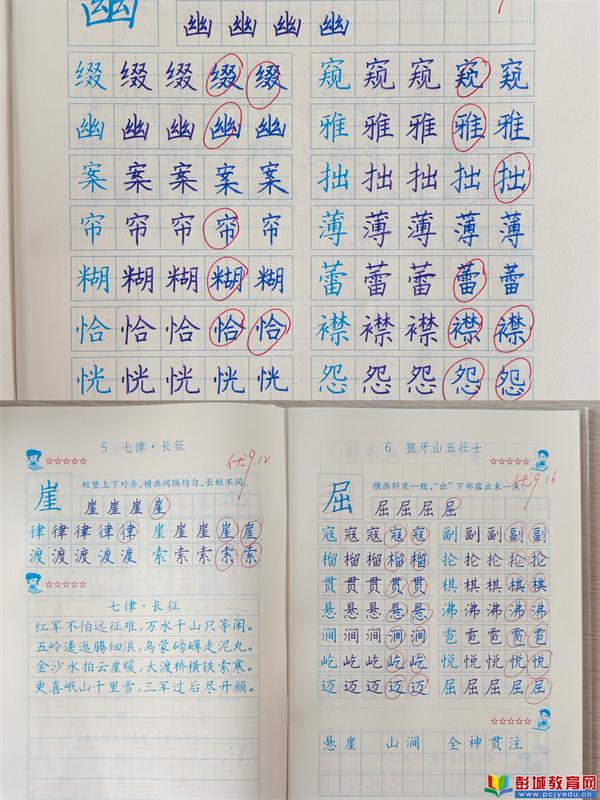 幽
幽 幽 幽 幽
缀 缀 缀 缀 缀 窥 窥 窥 窥 窥
幽 幽 幽 幽 幽 雅 雅 雅 雅 雅
案 案 案 案 案 拙 拙 拙 拙 拙
帘 帘 帘 帘 帘 薄 薄 薄 薄 薄
糊 糊 糊 糊 糊 蕾 蕾 蕾 蕾 蕾
恰 恰 恰 恰 恰 襟 襟 襟 襟 襟
恍 恍 恍 恍 恍 怨 怨 怨 怨 怨
5 七律·长征
优9.12
☆☆☆☆☆
崖
短竖上下对齐,横画间隔均匀,长短不同。
崖 崖 崖 崖
律 律 律 律 律 崖 崖 崖 崖 崖
渡 渡 渡 渡 渡 索 索 索 索 索
☆☆☆☆☆
七律·长征
红军不怕远征难,万水千山只等闲。
五岭逶迤腾细浪,乌蒙磅礴走泥丸。
金沙水拍云崖暖,大渡桥横铁索寒。
更喜岷山千里雪,三军过后尽开颜。
6 狼牙山五壮士
☆☆☆☆☆
优9.16
屈
横画斜度一致,“出”下部露出来一些。
屈 屈 屈 屈
寇 寇 寇 寇 寇 副 副 副 副 副
榴 榴 榴 榴 榴 抡 抡 抡 抡 抡
贯 贯 贯 贯 贯 棋 棋 棋 棋 棋
悬 悬 悬 悬 悬 沸 沸 沸 沸 沸
涧 涧 涧 涧 涧 雹 雹 雹 雹 雹
屹 屹 屹 屹 屹 悦 悦 悦 悦 悦
迈 迈 迈 迈 迈 屈 屈 屈 屈 屈
☆☆☆☆☆
悬崖 山涧 全神贯注
彭城教育网
www.pcjyedu.cn